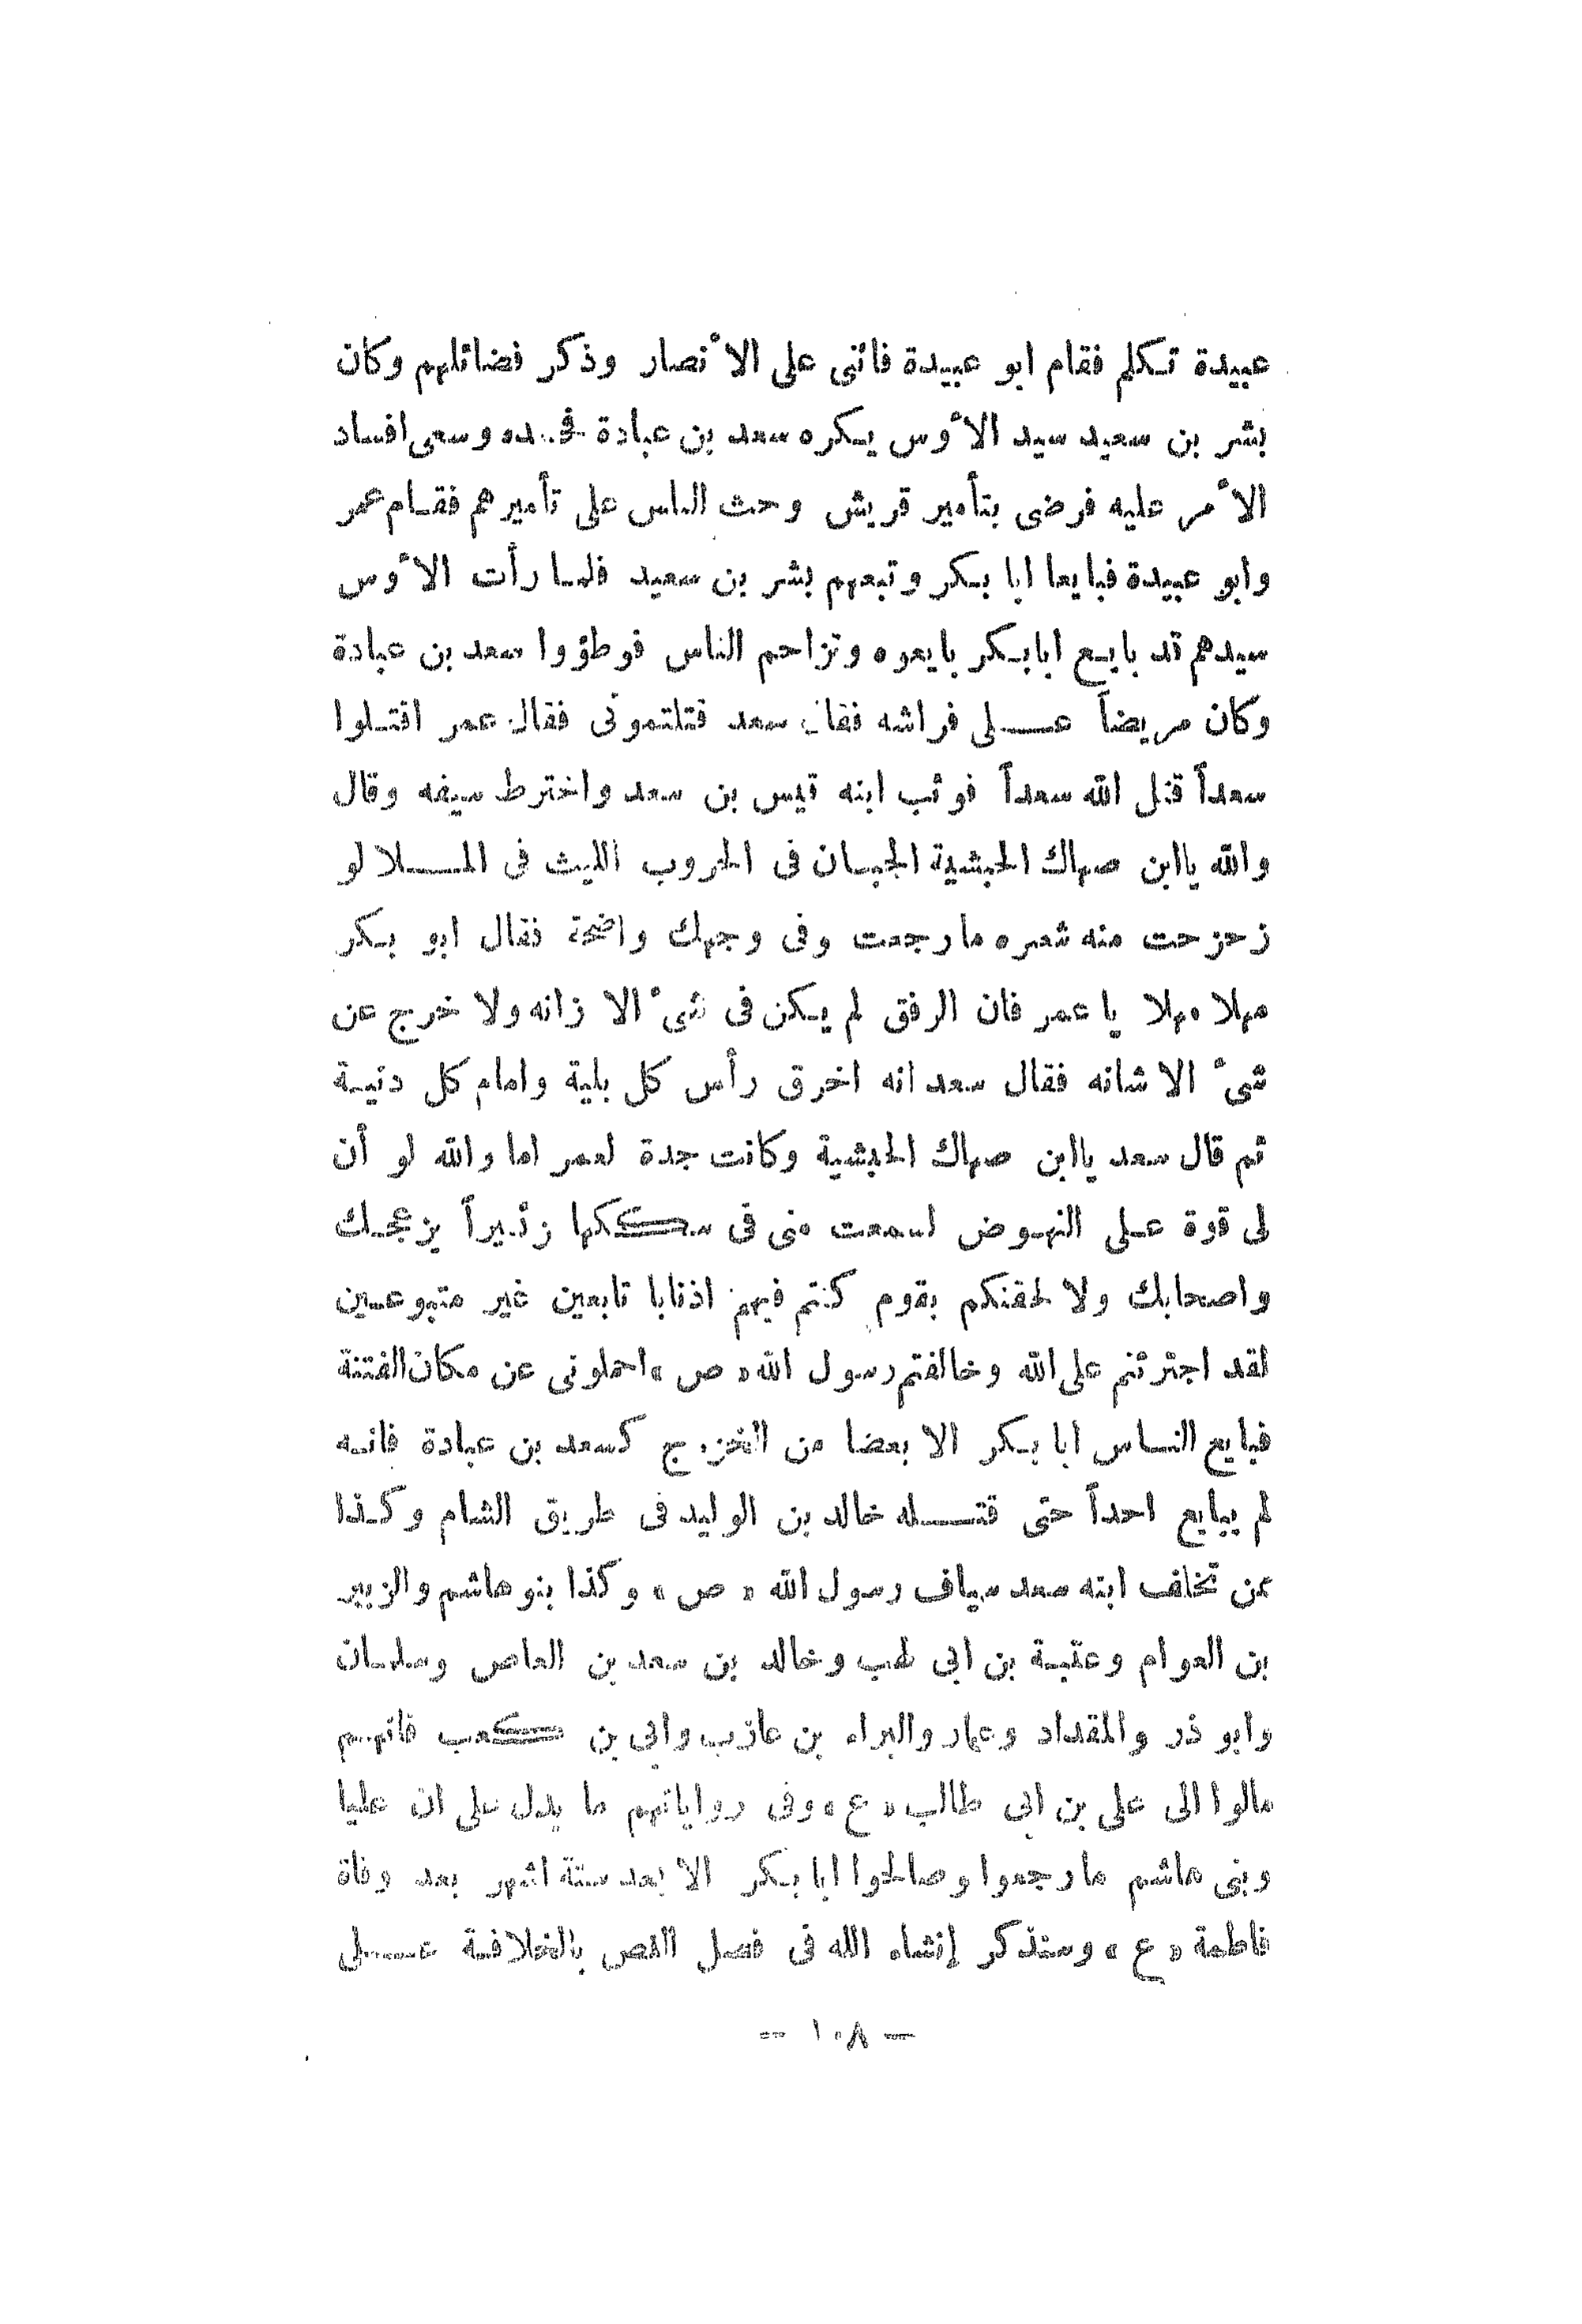 عبيدة تكلم فقام ابو عبيدة فاثنى على الأنصار وذكر فضائلهم وكان
بشر بن سعيد سيد الأوس يكره سعد بن عبادة فحسده وسعى افساد
الأمر عليه فرضى بتأمير قريش وحث الناس على تأميرهم فقام عمر
وابو عبيدة فبايعا ابا بكر وتبعهم بشر بن سعيد فلما رأت الأوس
سيدهم قد بايع ابابكر بايعوه وتزاحم الناس فوطؤوا سعد بن عبادة
وكان مريضاً على فراشه فقال سعد قتلتمونى فقال عمر اقتلوا
سعداً قتل الله سعداً فوثب ابنه قيس بن سعد واخترط سيفه وقال
والله ياابن صهاك الحبشية الجبان فى الحروب الليث فى الملا لو
زحزحت منه شعره مارجعت وفى وجهك واضحة فقال ابو بكر
مهلا مهلا يا عمر فان الرفق لم يكن فى شىء الا زانه ولا خرج عن
شىء الا شانه فقال سعد انه اخرق رأس كل بلية وامام كل دنية
ثم قال سعد ياابن صهاك الحبشية وكانت جدة لعمر اما والله لو أن
لى قوة على النهوض لسمعت منى فى سككها زئيراً يزعجك
واصحابك ولا لحقنكم بقوم كنتم فيهم اذنابا تابعين غير متبوعين
لقد اجترئتم على الله وخالفتم رسول الله « ص » احملونى عن مكان الفتنة
فبايع الناس ابا بكر الا بعضا من الخزرج كسعد بن عبادة فانه
لم يبايع احداً حتى قتله خالد بن الوليد فى طريق الشام وكذا
عن تخلف ابنه سعد سياف رسول الله « ص » وكذا بنو هاشم والزبير
بن العوام وعتبة بن ابى لهب وخالد بن سعد بن العاص وسلمان
وابو ذر والمقداد وعمار والبراء بن عازب وابى بن كعب فانهم
مالوا الى على بن ابى طالب « ع » وفى رواياتهم ما يدل على ان عليا
وبنى هاشم مارجعوا وصالحوا ابا بكر الا بعد ستة اشهر بعد وفاة
فاطمة « ع » وسنذكر إنشاء الله فى فصل النص بالخلافة على
— ١٠٨ —